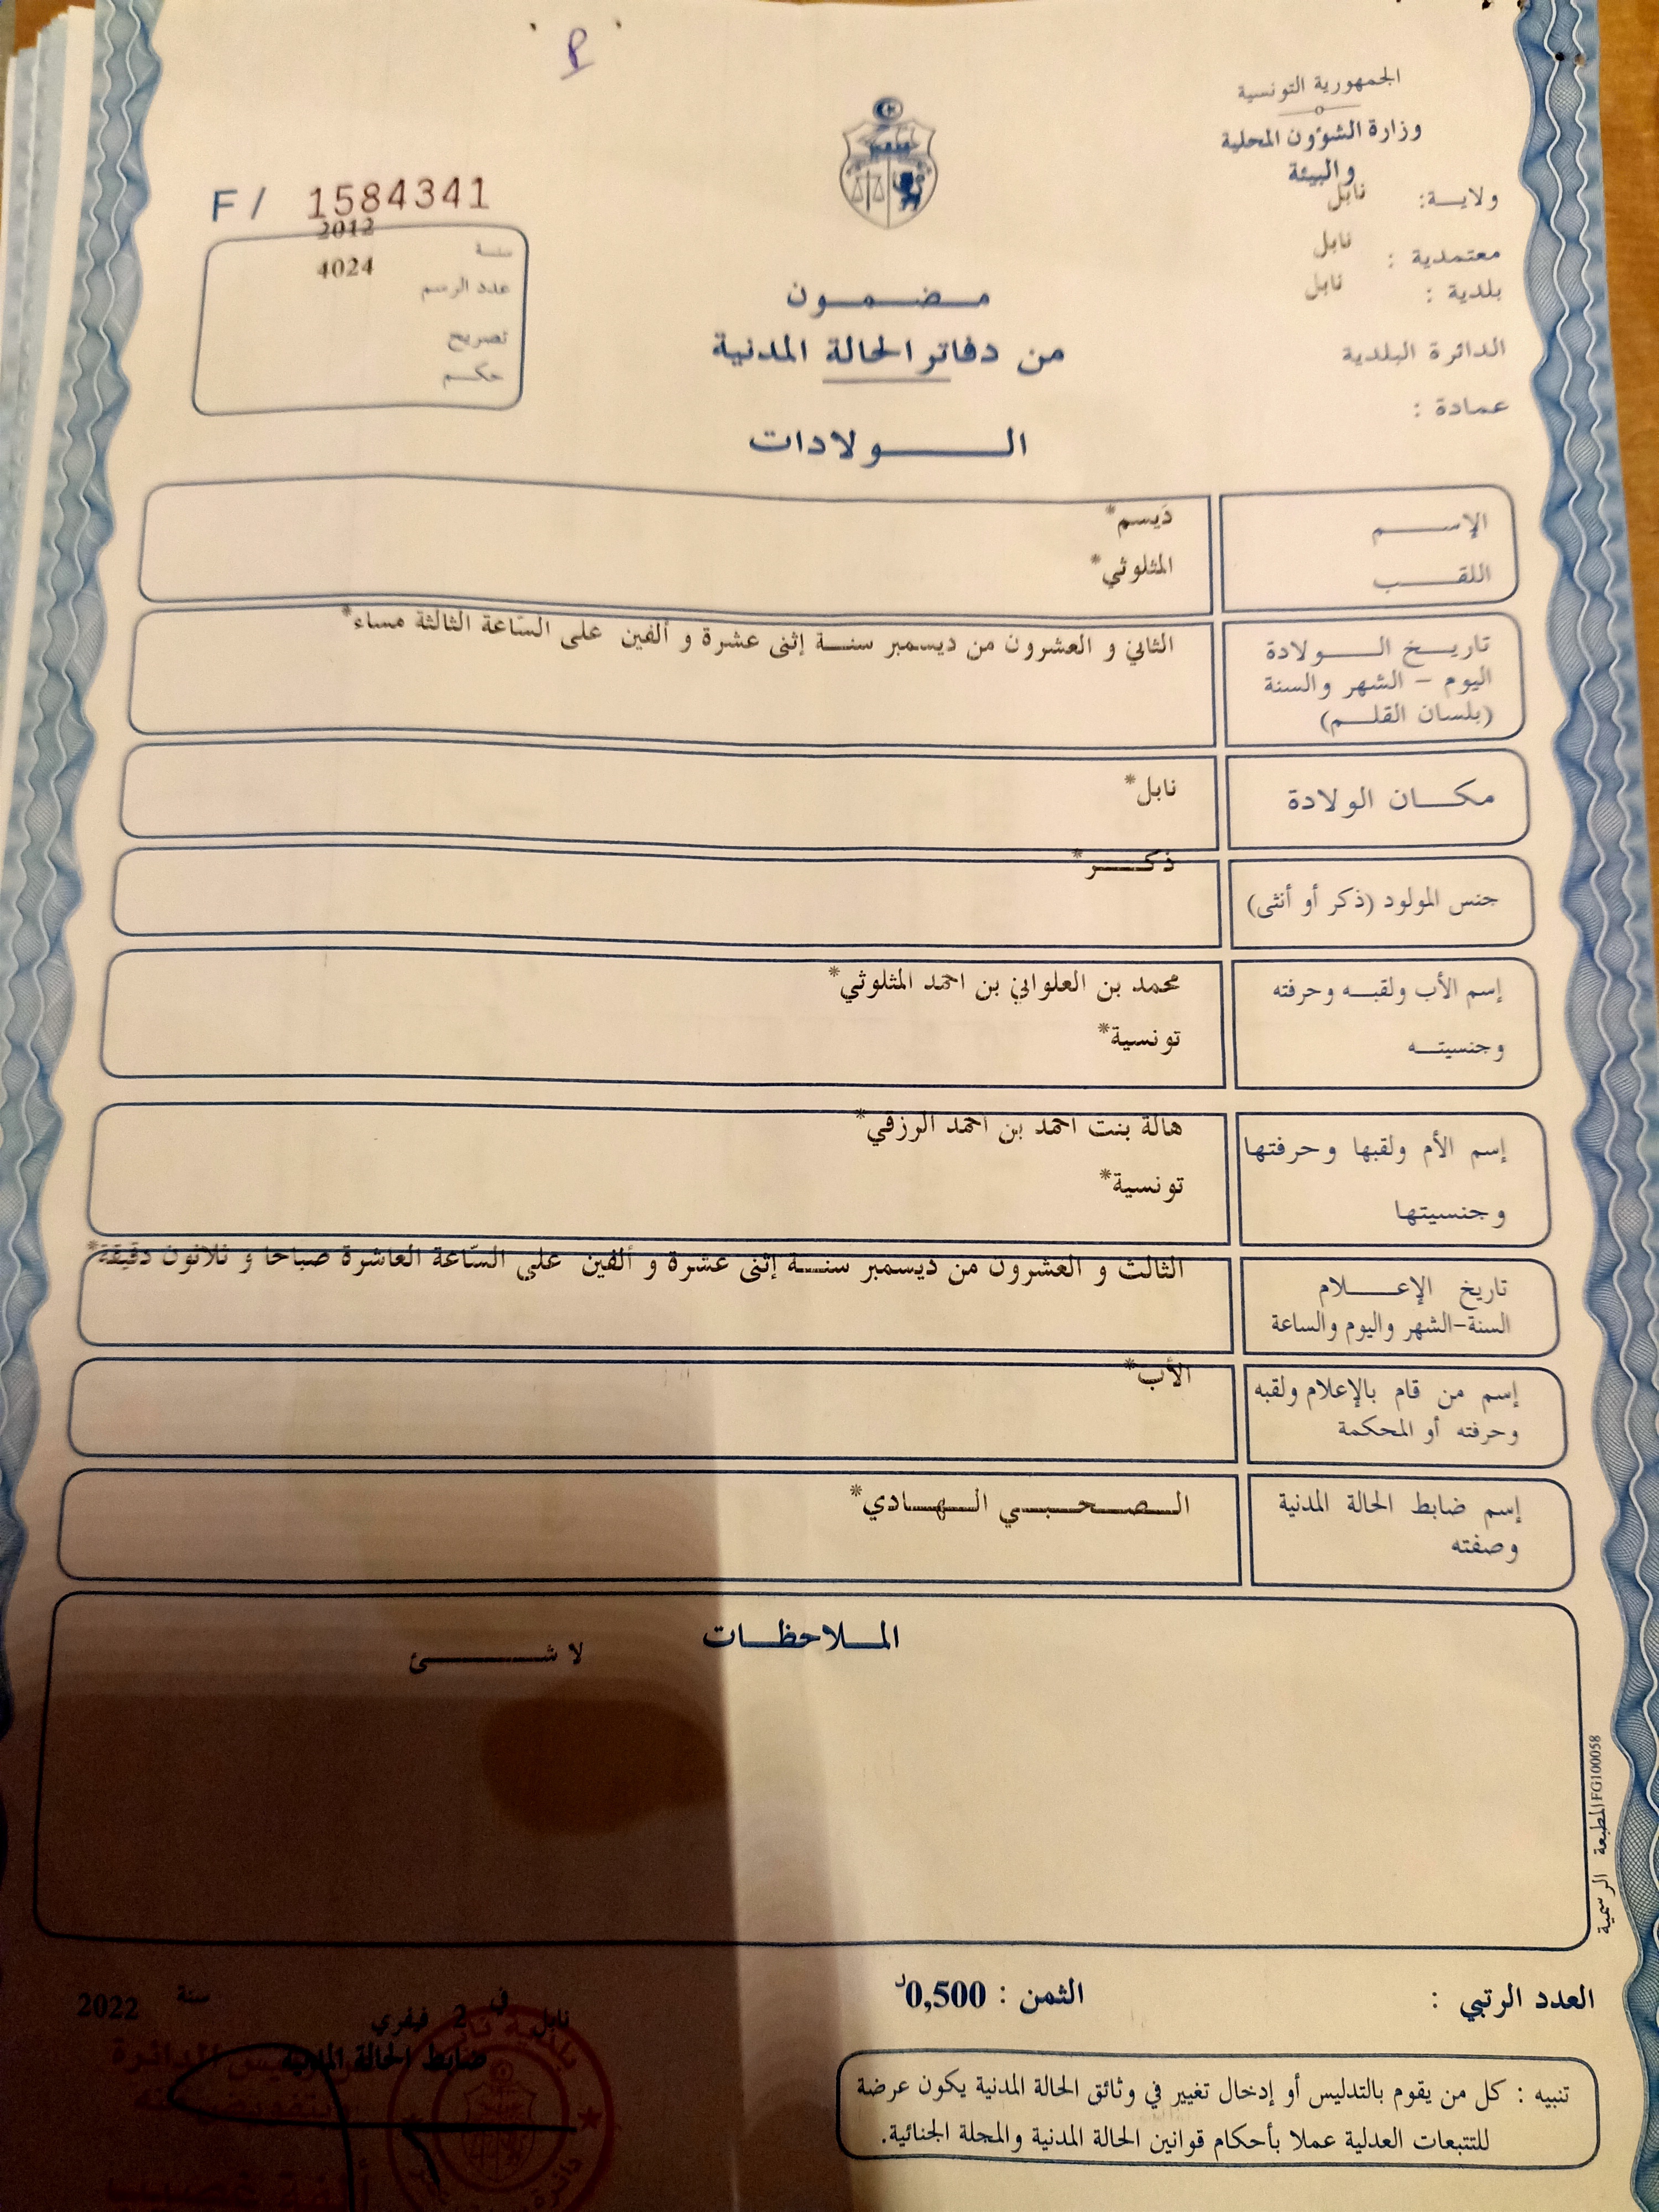 الجمهورية التونسية
وزارة الشؤون المحلية
والبيئة
ولاية: نابل
معتمدية : نابل
بلدية : نابل
الدائرة البلدية
عمادة :
F/ 1584341
سنة 2012
عدد الرسم 4024
تصريح
حكم
مضمون
من دفاتر الحالة المدنية
الولادات
الإسم دَيسم*
اللقب المثلوثي*
تاريخ الولادة الثاني و العشرون من ديسمبر سنة إثنى عشرة و ألفين على السّاعة الثالثة مساء*
اليوم - الشهر والسنة
(بلسان القلم)
مكان الولادة نابل*
جنس المولود (ذكر أو أنثى) ذكر*
إسم الأب ولقبه وحرفته محمد بن العلواني بن احمد المثلوثي*
وجنسيته تونسية*
إسم الأم ولقبها وحرفتها هالة بنت احمد بن احمد الرزقي*
وجنسيتها تونسية*
تاريخ الإعلام الثالث و العشرون من ديسمبر سنة إثنى عشرة و ألفين على السّاعة العاشرة صباحا و ثلاثون دقيقة*
السنة-الشهر واليوم والساعة
إسم من قام بالإعلام ولقبه الأب*
وحرفته أو المحكمة
إسم ضابط الحالة المدنية الصحبي الهادي*
وصفته
الملاحظات
لا شئ
المطبعة الرسمية FG100058
العدد الرتبي :
الثمن : 0,500د
نابل في 2 فيفري سنة 2022
ضابط الحالة المدنية
تنبيه : كل من يقوم بالتدليس أو إدخال تغيير في وثائق الحالة المدنية يكون عرضة
للتتبعات العدلية عملا بأحكام قوانين الحالة المدنية والمجلة الجنائية.